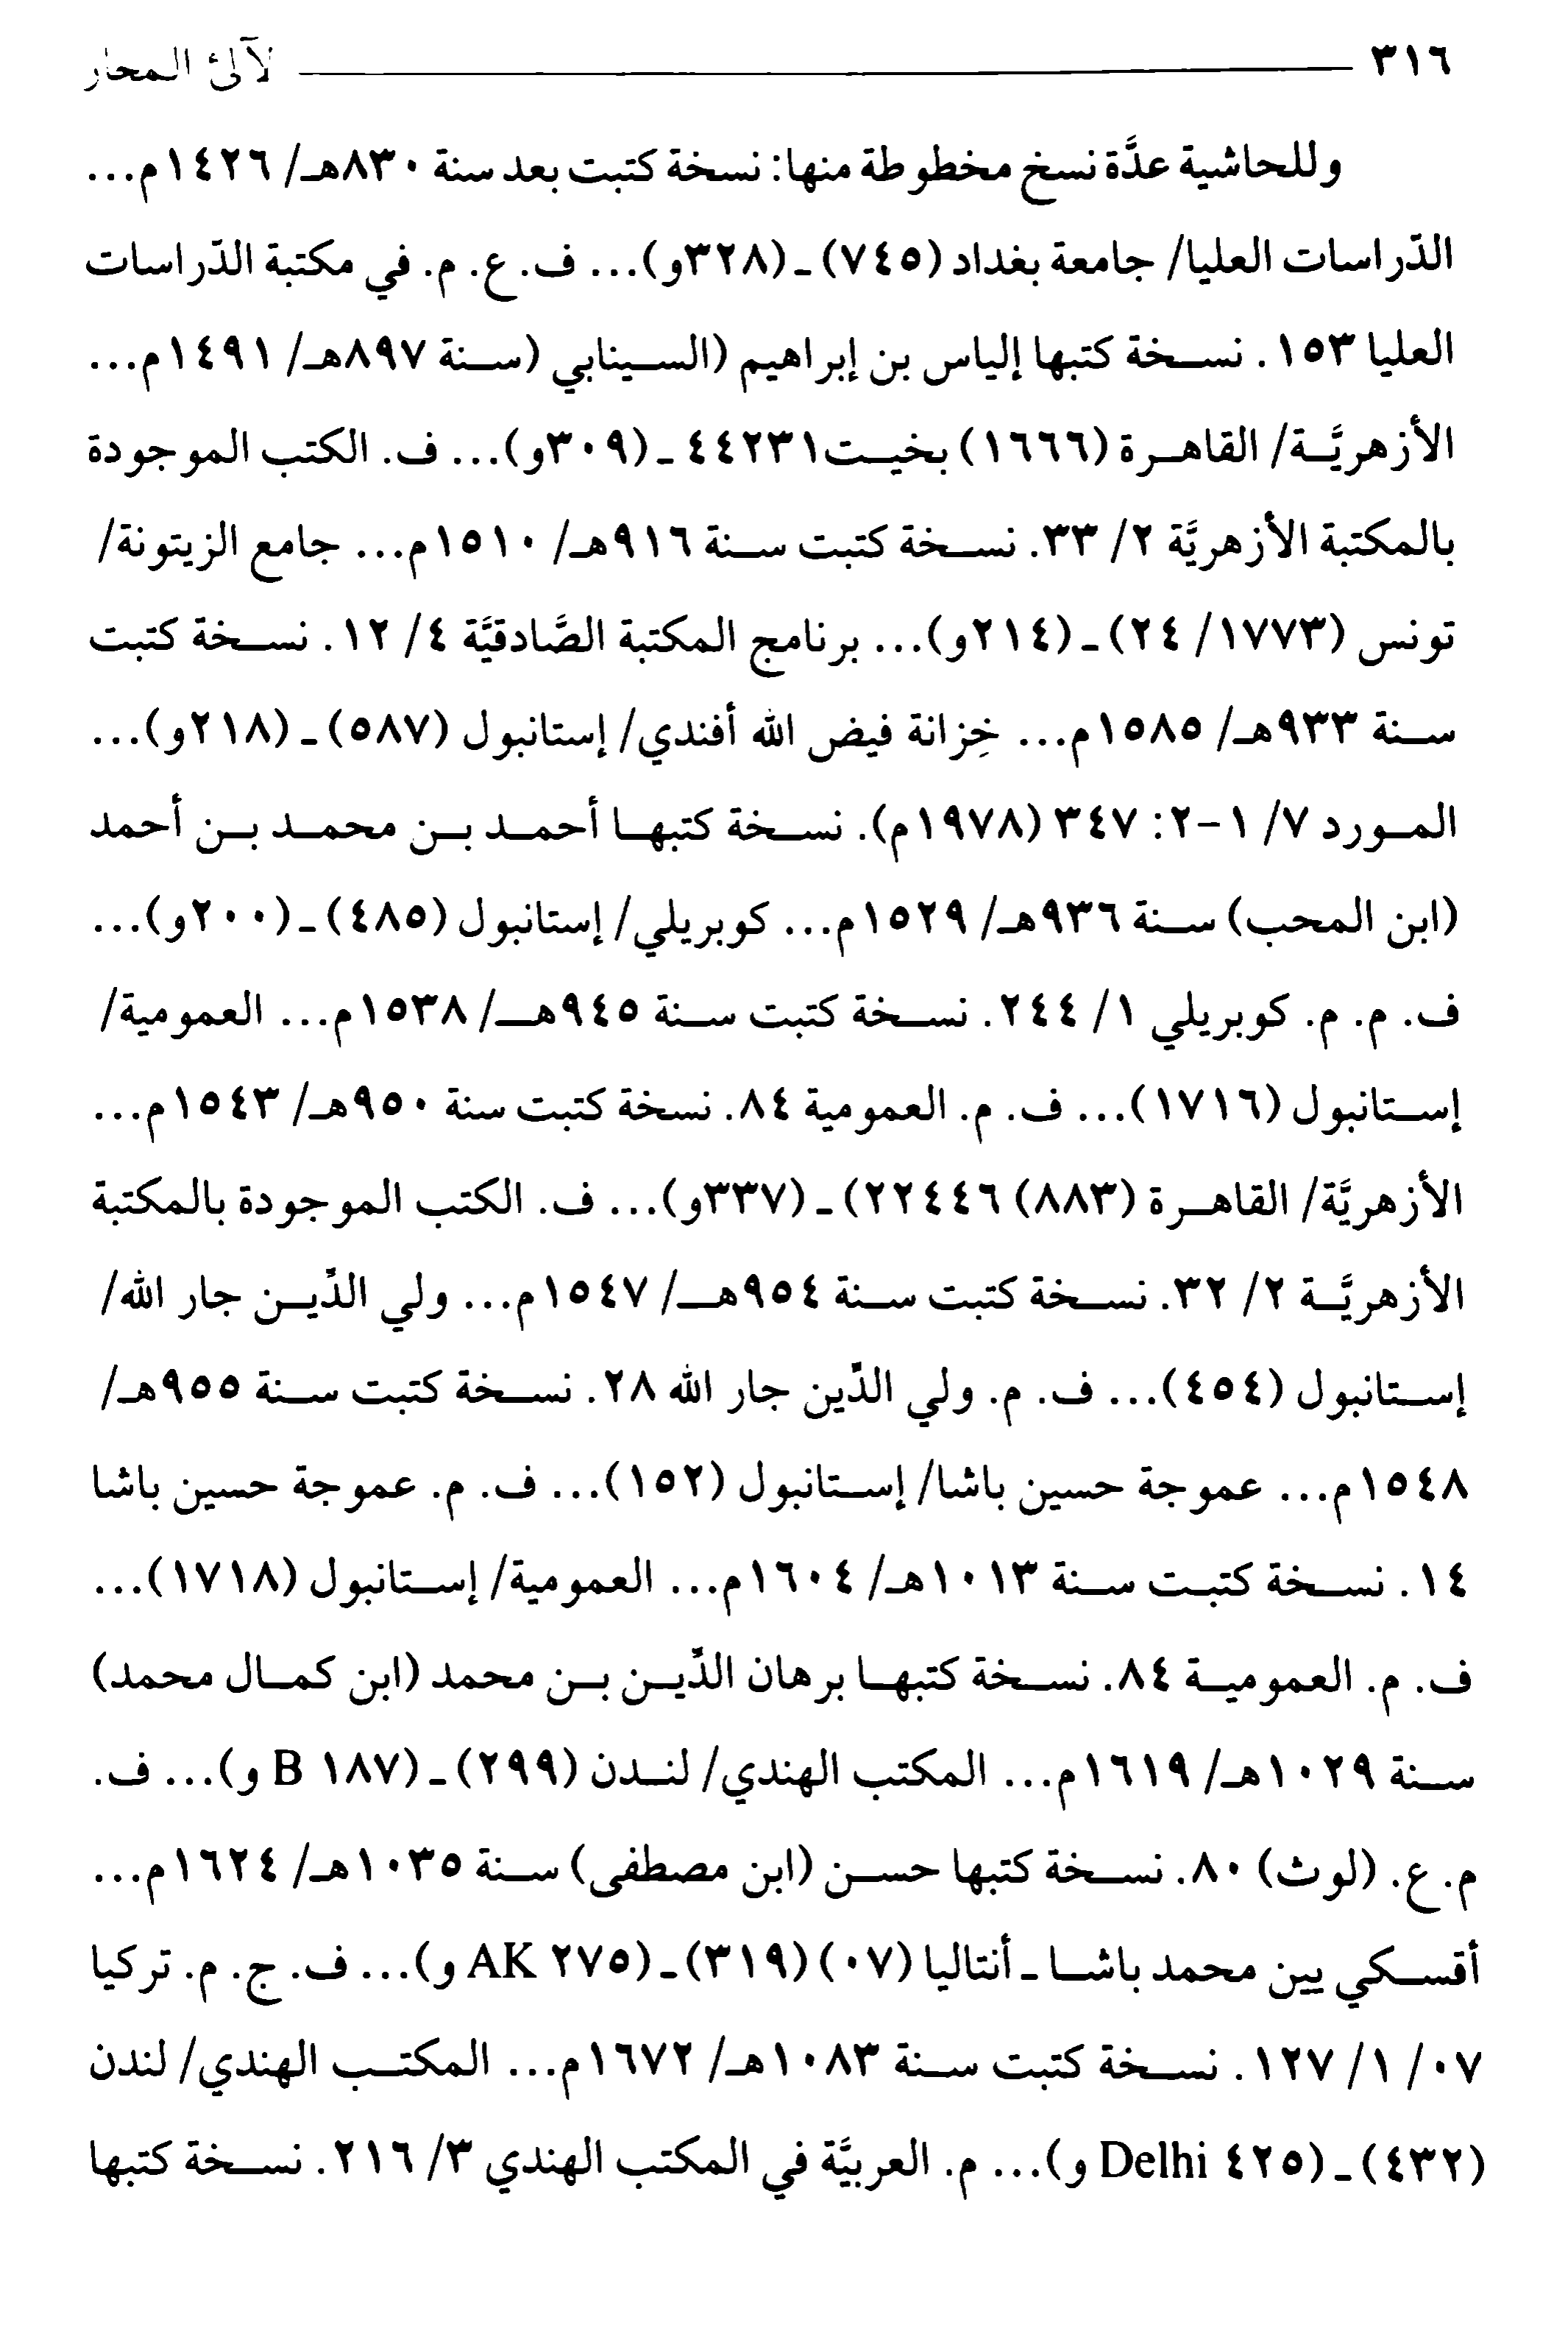 ٣١٦ لآلئ المحار
وللحاشية عدَّة نسخ مخطوطة منها: نسخة كتبت بعد سنة ٨٣٠هـ/ ١٤٢٦م...
الدّراسات العليا/ جامعة بغداد (٧٤٥) ـ (٣٢٨و)... ف. ع. م. في مكتبة الدّراسات
العليا ١٥٣. نسخة كتبها إلياس بن إبراهيم (السينابي (سنة ٨٩٧هـ/ ١٤٩١م...
الأزهريَّة/ القاهرة (١٦٦٦) بخيت٤٤٢٣١ ـ (٣٠٩و)... ف. الكتب الموجودة
بالمكتبة الأزهريَّة ٢/ ٣٣. نسخة كتبت سنة ٩١٦هـ/ ١٥١٠م... جامع الزيتونة/
تونس (١٧٧٣/ ٢٤) ـ (٢١٤و)... برنامج المكتبة الصَّادقيَّة ٤/ ١٢. نسخة كتبت
سنة ٩٣٣هـ/ ١٥٨٥م... خِزانة فيض الله أفندي/ إستانبول (٥٨٧) ـ (٢١٨و)...
المورد ٧/ ١-٢: ٣٤٧ (١٩٧٨م). نسخة كتبها أحمد بن محمد بن أحمد
(ابن المحب) سنة ٩٣٦هـ/ ١٥٢٩م... كوبريلي/ إستانبول (٤٨٥) ـ (٢٠٠و)...
ف. م. م. كوبريلي ١/ ٢٤٤. نسخة كتبت سنة ٩٤٥هـ/ ١٥٣٨م... العمومية/
إستانبول (١٧١٦)... ف. م. العمومية ٨٤. نسخة كتبت سنة ٩٥٠هـ/ ١٥٤٣م...
الأزهريَّة/ القاهرة (٨٨٣) ٢٢٤٤٦) ـ (٣٣٧و)... ف. الكتب الموجودة بالمكتبة
الأزهريَّة ٢/ ٣٢. نسخة كتبت سنة ٩٥٤هـ/ ١٥٤٧م... ولي الدِّين جار الله/
إستانبول (٤٥٤)... ف. م. ولي الدِّين جار الله ٢٨. نسخة كتبت سنة ٩٥٥هـ/
١٥٤٨م... عموجة حسين باشا/ إستانبول (١٥٢)... ف. م. عموجة حسين باشا
١٤. نسخة كتبت سنة ١٠١٣هـ/ ١٦٠٤م... العمومية/ إستانبول (١٧١٨)...
ف. م. العمومية ٨٤. نسخة كتبها برهان الدِّين بن محمد (ابن كمال محمد)
سنة ١٠٢٩هـ/ ١٦١٩م... المكتب الهندي/ لندن (٢٩٩) ـ (١٨٧ B و)... ف.
م. ع. (لوث) ٨٠. نسخة كتبها حسن (ابن مصطفى) سنة ١٠٣٥هـ/ ١٦٢٤م...
أقسكي يين محمد باشا ـ أنتاليا (٠٧) (٣١٩) ـ (٢٧٥ AK و)... ف. ج. م. تركيا
٠٧/ ١/ ١٢٧. نسخة كتبت سنة ١٠٨٣هـ/ ١٦٧٢م... المكتب الهندي/ لندن
(٤٣٢) ـ (٤٢٥ Delhi و)... م. العربيَّة في المكتب الهندي ٣/ ٢١٦. نسخة كتبها